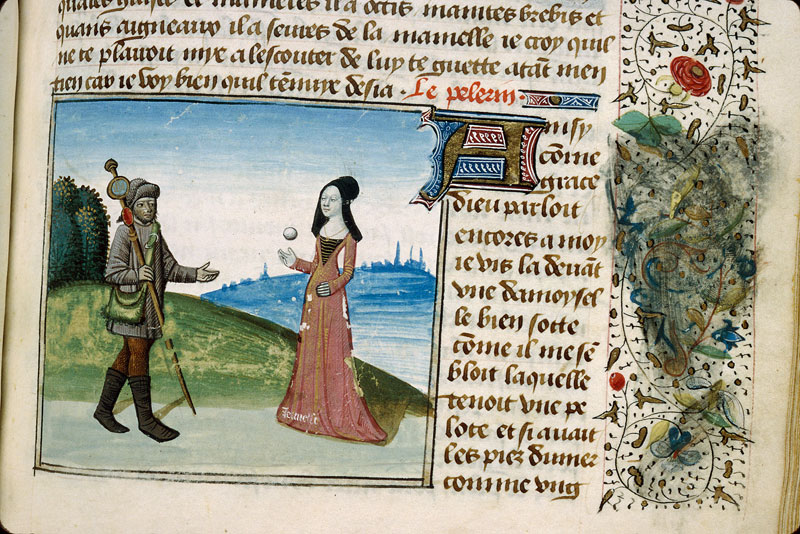 et mameles il a occis maintes brebis et
quans aigneaux il a seures de la mamelle ie croy quil
ne te plairoit mye a lescouter de luy te guette atāt men
tien car ie voy bien quil tēnuye desia · Le pelerin ·
Ainsy
cōme
grace
dieu parloit
encores a moy
ie vis la deuāt
vne damoysel
le bien sotte
cōme il me sē
bloit laquelle
tenoit vne pe
lote et si auait
les piez dumer
comme vng